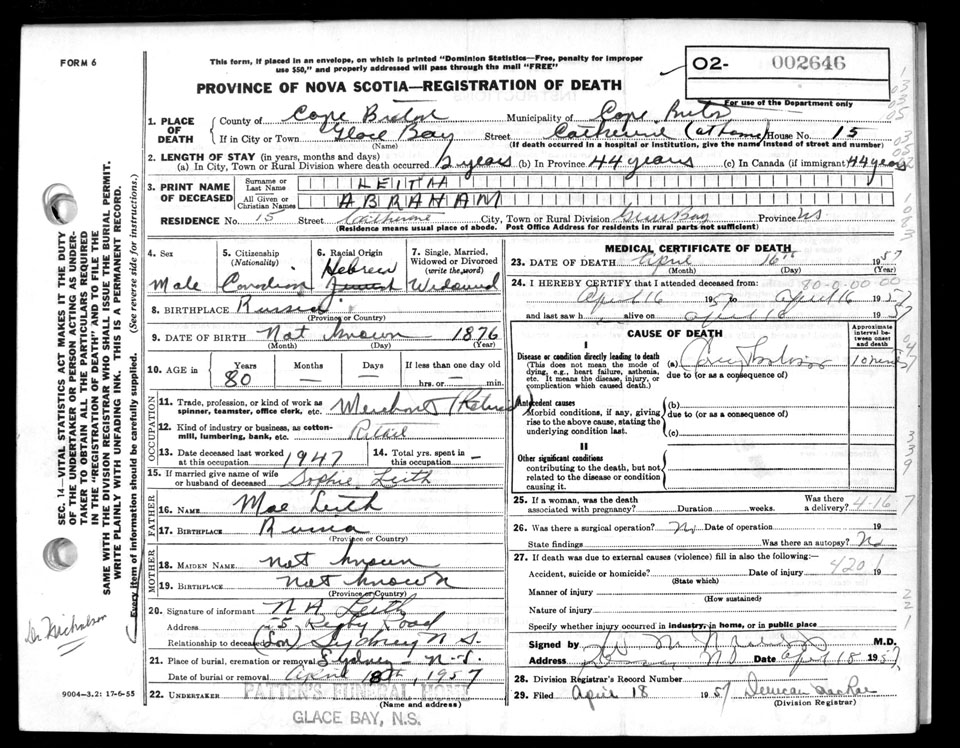 FORM 6
This form, if placed in an envelope, on which is printed "Dominion Statistics—Free, penalty for improper
use $50," and properly addressed will pass through the mail "FREE"
PROVINCE OF NOVA SCOTIA—REGISTRATION OF DEATH
O2- 002646
For use of the Department only
1. PLACE OF DEATH
County of Cape Breton Municipality of Cape Breton
If in City or Town Glace Bay Street Catherine (at home) House No. 15
(Name) (If death occurred in a hospital or institution, give the name instead of street and number)
2. LENGTH OF STAY (in years, months and days)
(a) In City, Town or Rural Division where death occurred years (b) In Province 44 years (c) In Canada (if immigrant) 44 years
3. PRINT NAME OF DECEASED
Surname or Last Name LEITH
All Given or Christian Names ABRAHAM
RESIDENCE No. 15 Street Catherine City, Town or Rural Division Glace Bay Province NS
(Residence means usual place of abode. Post Office Address for residents in rural parts not sufficient)
4. Sex
Male
5. Citizenship
(Nationality)
Canadian
6. Racial Origin
Hebrew
7. Single, Married, Widowed or Divorced
(write the word)
Widowed
8. BIRTHPLACE Russia
(Province or Country)
9. DATE OF BIRTH Not known 1876
(Month) (Day) (Year)
10. AGE in Years Months Days If less than one day old
80 — — hrs. or min.
OCCUPATION
11. Trade, profession, or kind of work as
spinner, teamster, office clerk, etc. Merchant (Retired)
12. Kind of industry or business, as cotton-
mill, lumbering, bank, etc. Retail
13. Date deceased last worked
at this occupation 1947
14. Total yrs. spent in
this occupation —
15. If married give name of wife
or husband of deceased Sophie Leith
FATHER
16. NAME Leith
17. BIRTHPLACE Russia
(Province or Country)
MOTHER
18. MAIDEN NAME not known
19. BIRTHPLACE Not known
(Province or Country)
20. Signature of informant N H Leith
Address Road
Relationship to deceased (Son) Sydney N S.
21. Place of burial, cremation or removal Sydney - N.S.
Date of burial or removal April 18th, 1957
22. UNDERTAKER PATTEN'S FUNERAL HOME
(Name and address)
GLACE BAY, N.S.
MEDICAL CERTIFICATE OF DEATH
23. DATE OF DEATH April 16th 1957
(Month) (Day) (Year)
24. I HEREBY CERTIFY that I attended deceased from: 80-0.00 00
April 16 1957 to April 16 1957
and last saw h alive on April 16 1957
CAUSE OF DEATH
Approximate interval between onset and death
I
Disease or condition directly leading to death
(This does not mean the mode of dying, e.g., heart failure, asthenia, etc. It means the disease, injury, or complication which caused death.)
(a) 10
due to (or as a consequence of)
Antecedent causes
Morbid conditions, if any, giving rise to the above cause, stating the underlying condition last.
(b)
due to (or as a consequence of)
(c)
II
Other significant conditions
contributing to the death, but not related to the disease or condition causing it.
25. If a woman, was the death
associated with pregnancy? Duration weeks. Was there a delivery? 4-16 7
26. Was there a surgical operation? No Date of operation 19
State findings Was there an autopsy? No
27. If death was due to external causes (violence) fill in also the following:—
Accident, suicide or homicide? Date of injury 4201 19
(State which)
Manner of injury
(How sustained)
Nature of injury
Specify whether injury occurred in industry, in home, or in public place
Signed by M.D.
Address Date April 18 1957
28. Division Registrar's Record Number
29. Filed April 18 1957 Duncan
(Division Registrar)
SEC. 14—VITAL STATISTICS ACT MAKES IT THE DUTY
OF THE UNDERTAKER OR PERSON ACTING AS UNDER-
TAKER TO OBTAIN ALL THE PARTICULARS REQUIRED
IN THE "REGISTRATION OF DEATH" AND TO FILE THE
SAME WITH THE DIVISION REGISTRAR WHO SHALL ISSUE THE BURIAL PERMIT.
WRITE PLAINLY WITH UNFADING INK. THIS IS A PERMANENT RECORD.
Every item of information should be carefully supplied. (See reverse side for instructions.)
Dr Nicholson
9004—3.2: 17-6-55